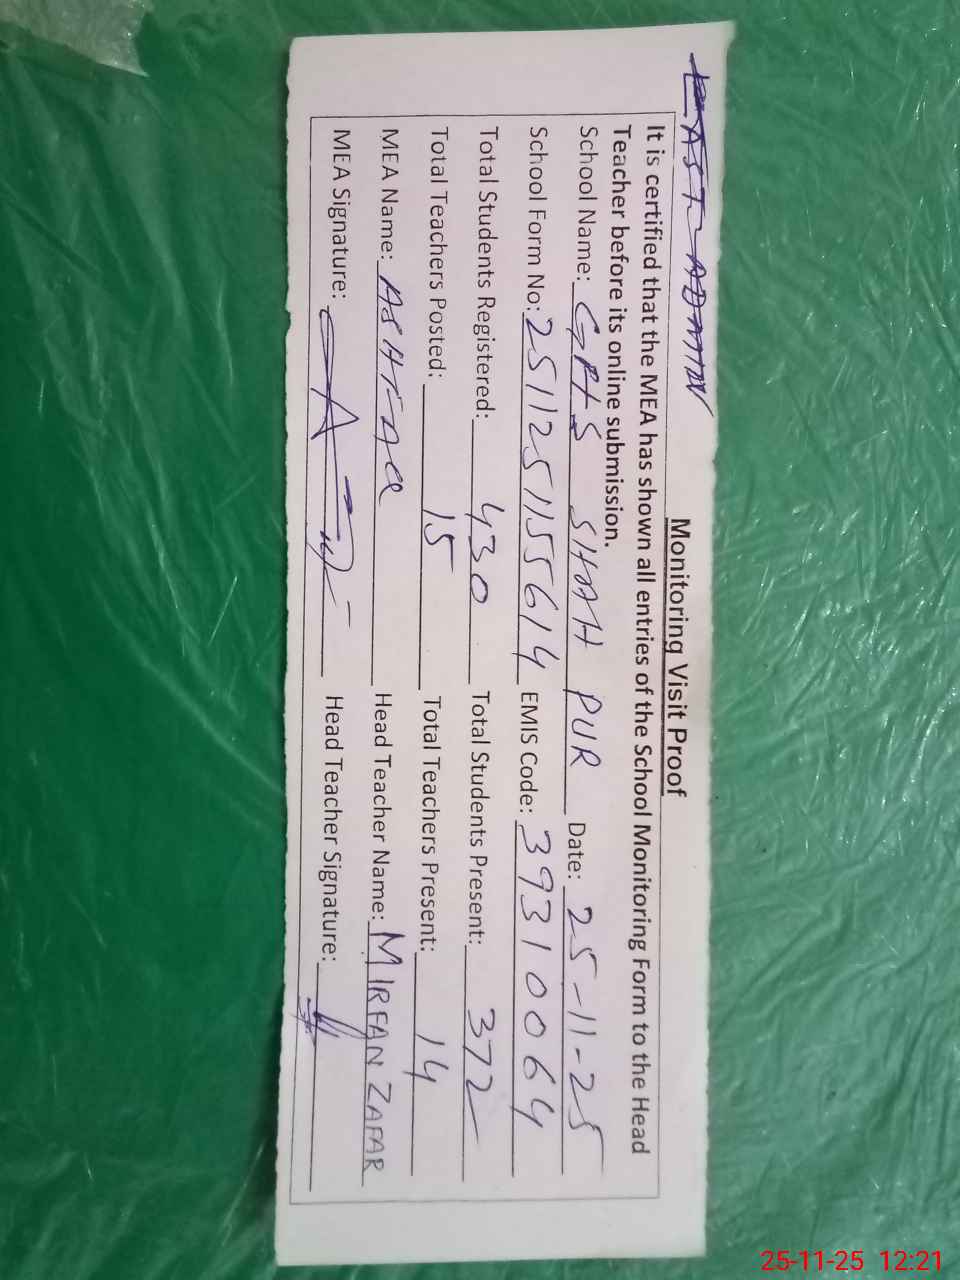 LAST-ADMIN
Monitoring Visit Proof
It is certified that the MEA has shown all entries of the School Monitoring Form to the Head
Teacher before its online submission.
School Name: GPHS SHAH PUR Date: 25-11-25
School Form No: 2511251155614 EMIS Code: 39310064
Total Students Registered: 430 Total Students Present: 372
Total Teachers Posted: 15 Total Teachers Present: 14
MEA Name: ASHFAQ Head Teacher Name: M IRFAN ZAFAR
MEA Signature: Head Teacher Signature:
25-11-25 12:21